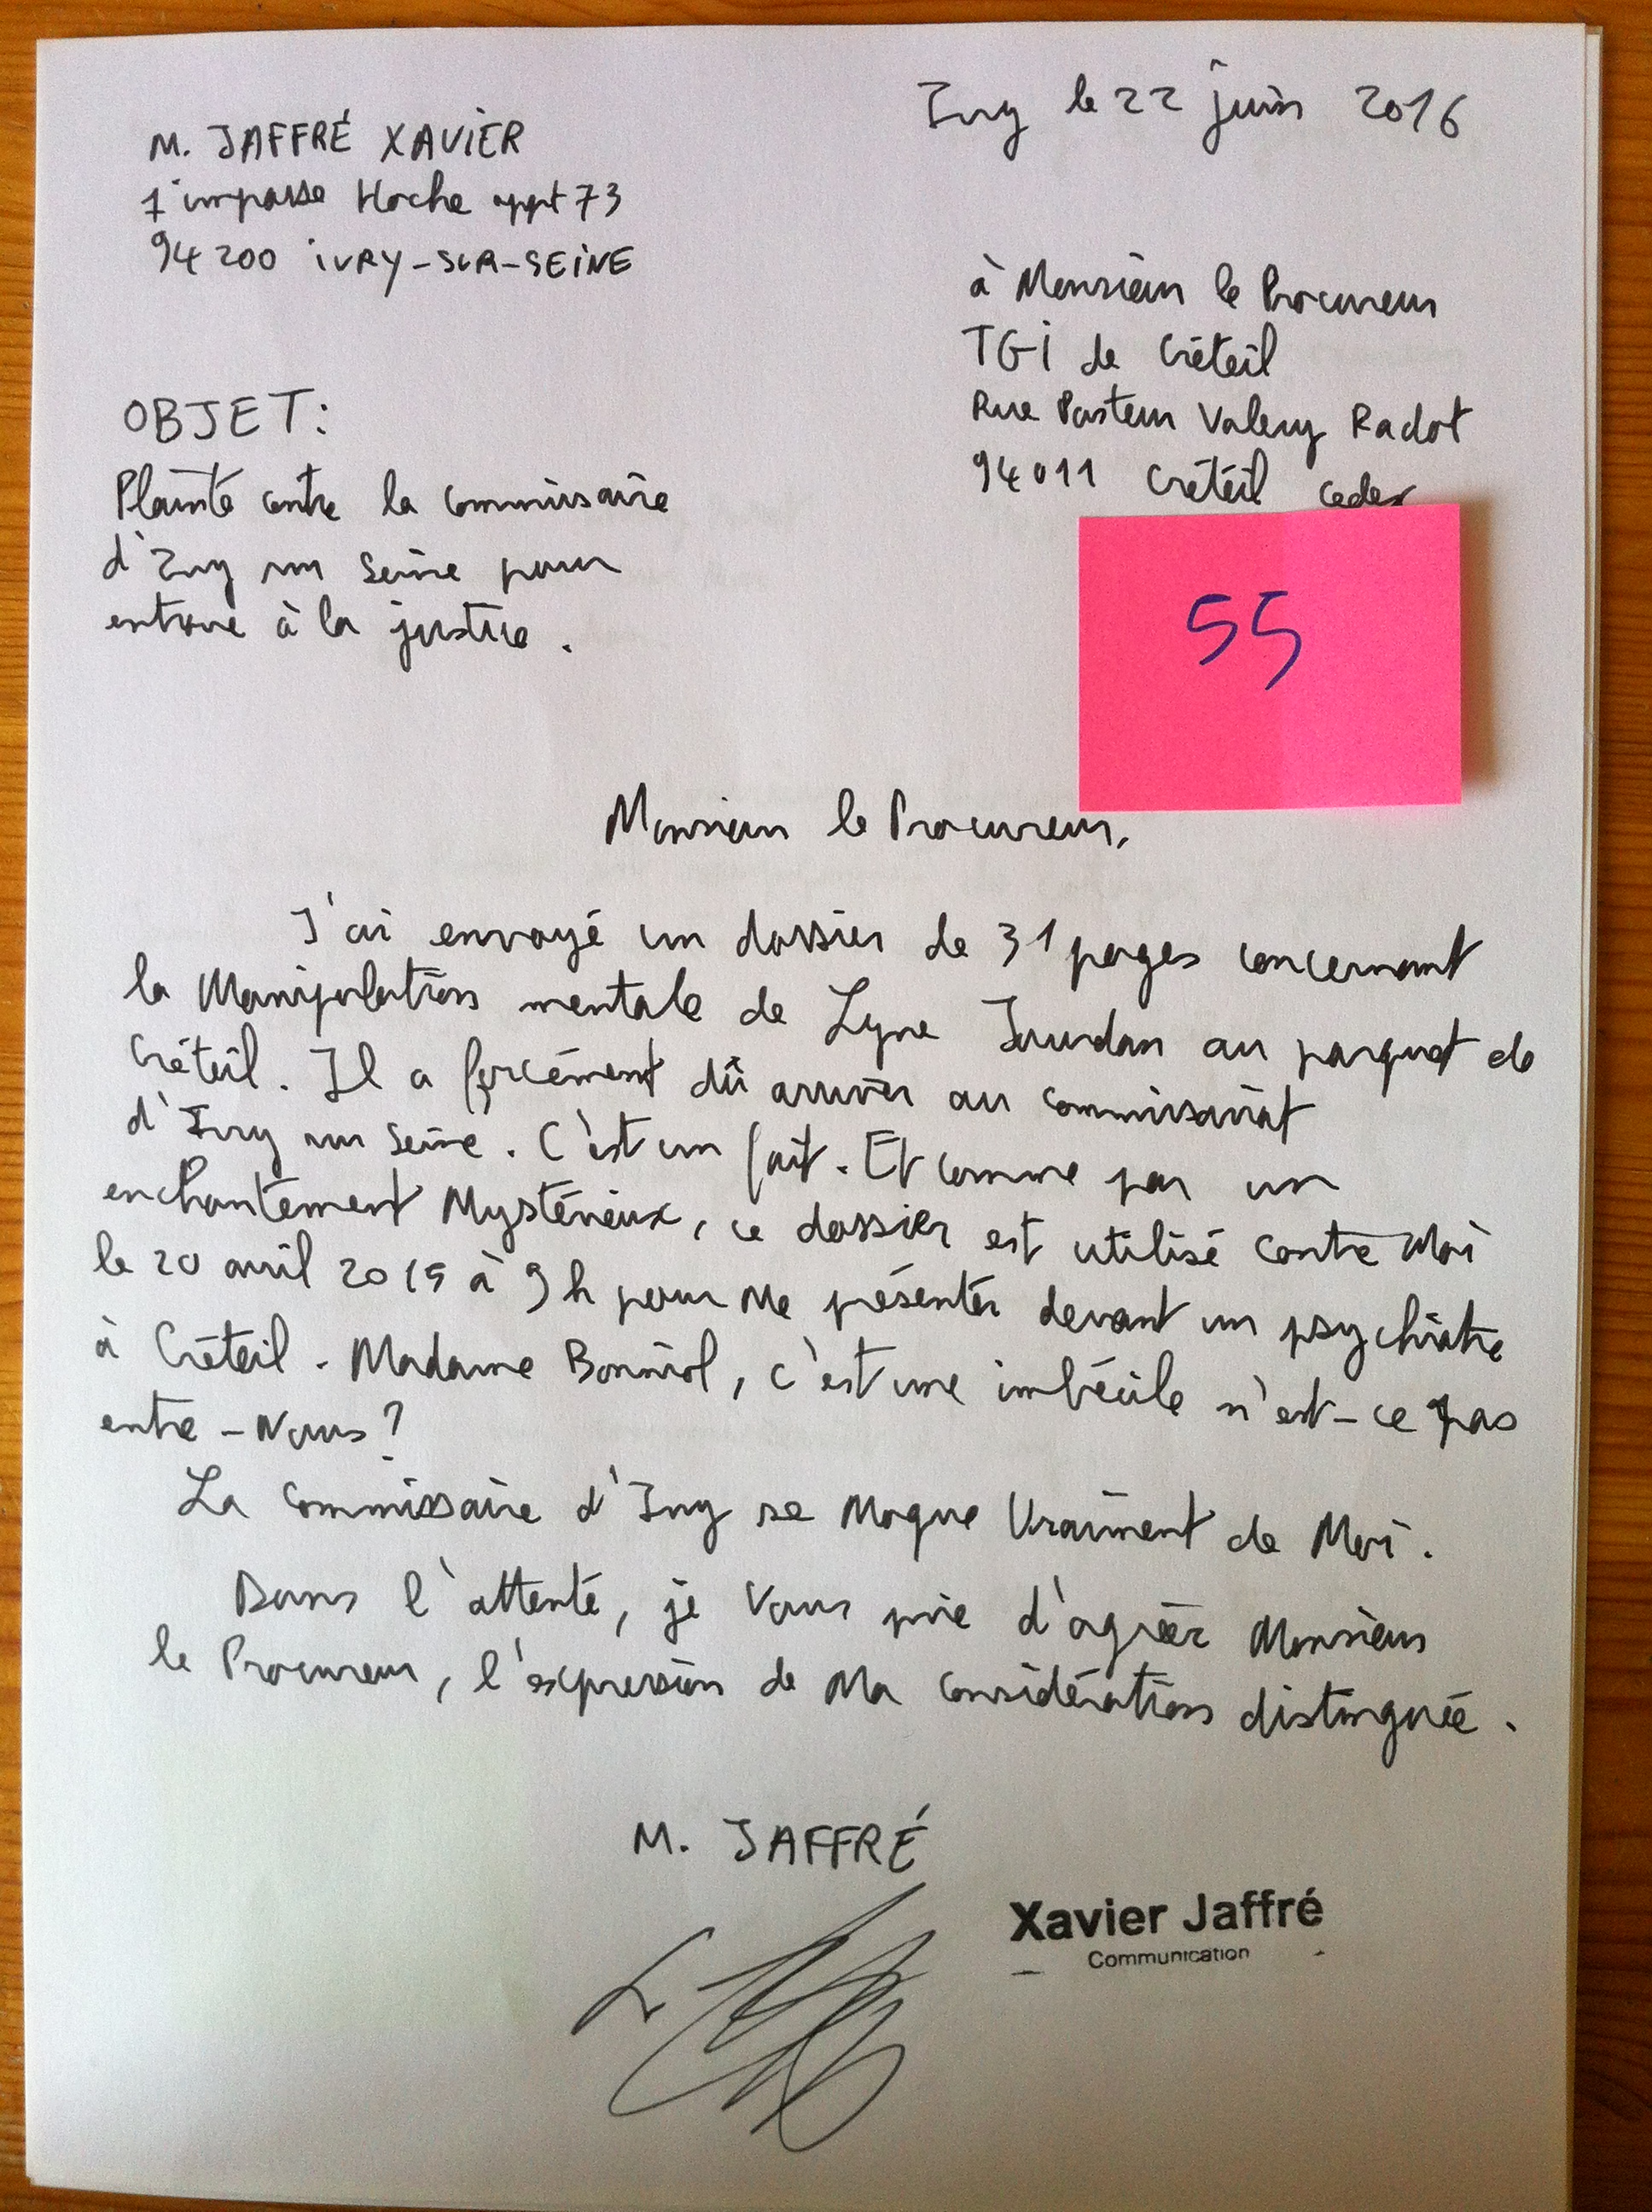 Ivry le 22 juin 2016
M. JAFFRÉ XAVIER
1 impasse Hoche appt 73
94200 IVRY-SUR-SEINE
à Monsieur le Procureur
TGI de Créteil
Rue Pasteur Valery Radot
94011 Créteil cedex
OBJET:
Plainte contre la commissaire
d'Ivry sur Seine pour
entrave à la justice.
55
Monsieur le Procureur,
J'ai envoyé un dossier de 31 pages concernant
la Manipulation mentale de Lyne Jourdan au parquet de
Créteil. Il a forcément dû arriver au commissariat
d'Ivry sur Seine. C'est un fait. Et comme par un
enchantement Mystérieux, ce dossier est utilisé contre Moi
le 20 avril 2015 à 9h pour Me présenter devant un psychiatre
à Créteil. Madame Bonniol, c'est une imbécile n'est-ce pas
entre-Nous?
La Commissaire d'Ivry se Moque Vraiment de Moi.
Dans l'attente, je Vous prie d'agréer Monsieur
le Procureur, l'expression de Ma Considération distinguée.
M. JAFFRÉ
Xavier Jaffré
Communication